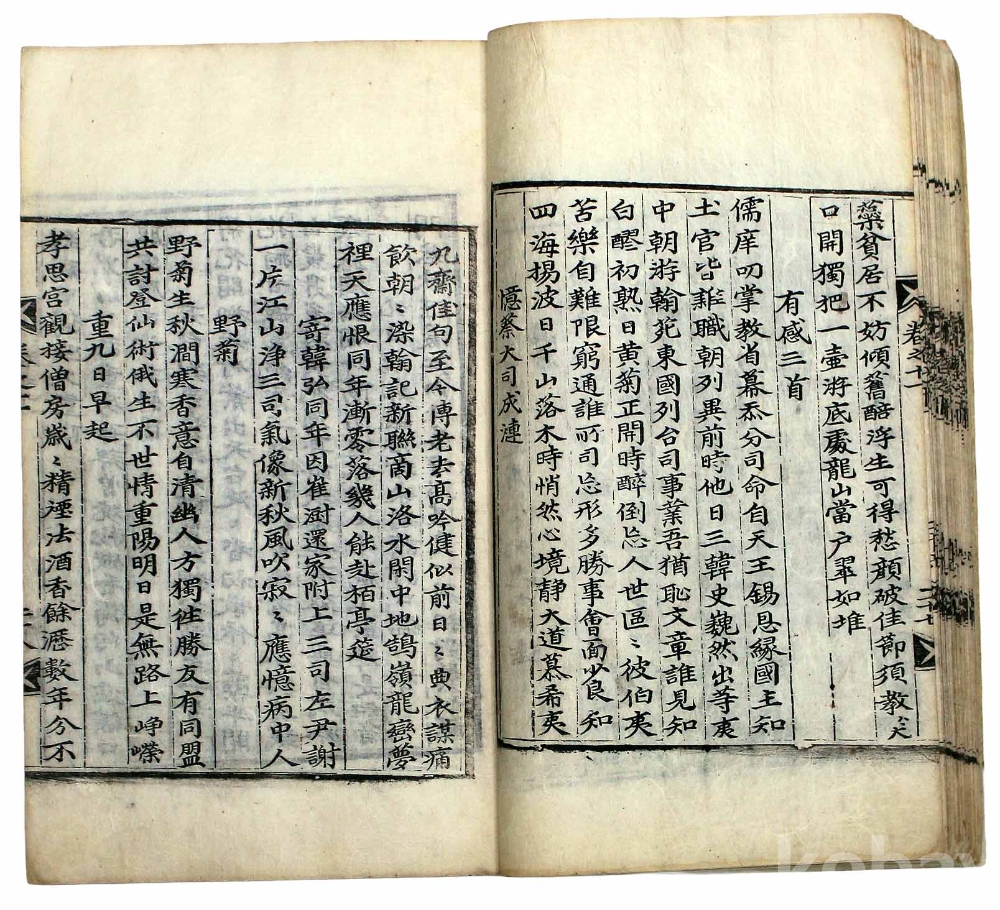 蘂貧居不妨傾舊醅浮生可得愁顔破佳節須教大
口開獨把一壺游底處龍山當户翠如堆
有感三首
儒庠叨掌教省幕忝分司命自天王錫恩緣國主知
土官皆雜職朝列異前時他日三韓史巍然出等夷
中朝游翰苑東國列台司事業吾猶恥文章誰見知
白醪初熟日黄菊正開時醉倒忘人世區〻彼伯夷
苦樂自難限窮通誰所司忘形多勝事會面少良知
四海揚波日千山落木時悄然心境静大道慕希夷
憶蔡大司成漣
卷之十一
二十七
九齋佳句至今傳老去高吟健似前日〻典衣謀痛
飲朝〻染翰記新聯商山洛水閑中地鵠嶺龍巒夢
裡天應恨同年漸零落幾人能赴栢亭筵
寄韓弘同年因崔澍還家附上三司左尹謝
一片江山浄三司氣像新秋風吹寂〻應憶病中人
野菊
野菊生秋澗寒香意自清幽人方獨徃勝友有同盟
共討登仙術俄生不世情重陽明日是無路上崢嶸
重九日早起
孝思宫觀接僧房歲〻精禋法酒香餘瀝數年分不